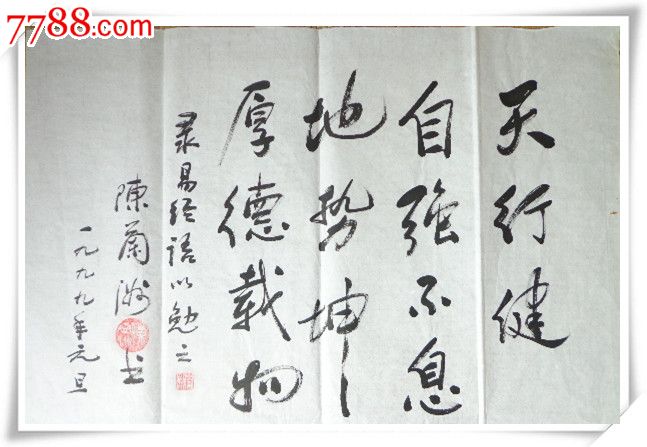 7788.com
天行健
自強不息
地势坤
厚德载物
录易经语以勉之
陳蘭洲书
一九九九年元旦